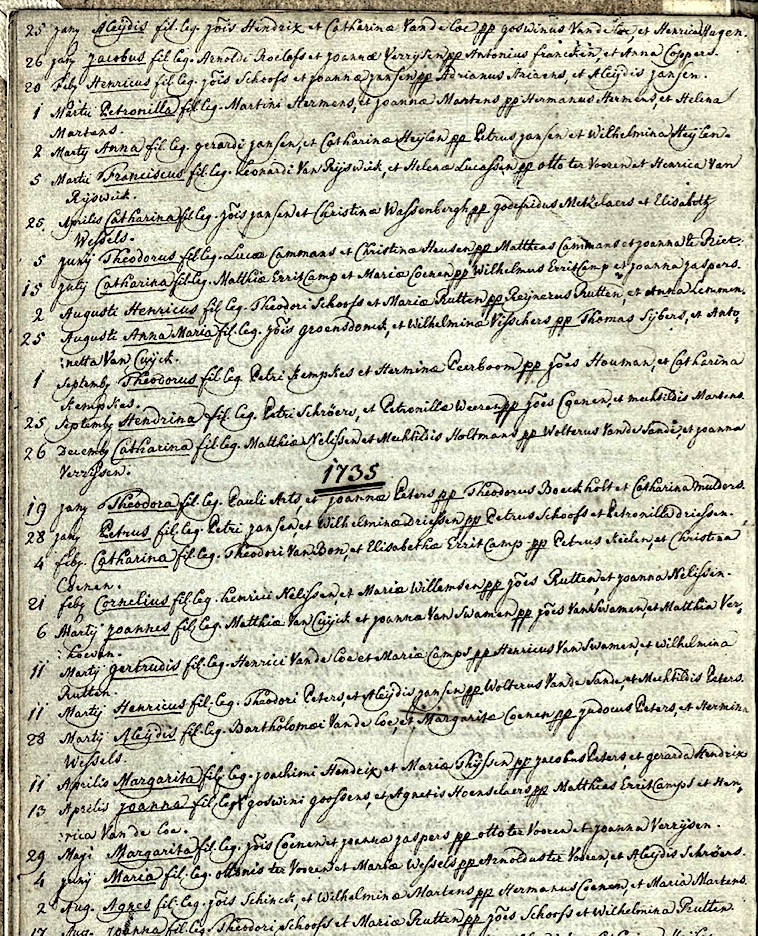 25 janÿ Aleÿdis fil. leg. jõis Hendrix et Catharinæ Van de Loe pp goswinus Van de Loe et Henrica Hagen.
26 janÿ jacobus fil. leg. Arnoldi Roelofs et joannæ Verrÿsen pp Antonius francken, et Anna Coppers.
20 feby Henricus fil. leg. jõis Schoofs et joannæ jansen pp Adrianus et Aleÿdis jansen.
1 Martii Petronilla fil. leg. Martini Hermens, et joannæ Martens pp Hermanus Hermens, et Helena
Martens.
2 Martÿ Anna fil. leg. gerardi jansen, et Catharinæ Heÿlen pp Petrus jansen et Wilhelmina Heÿlen.
5 Martii Franciscus fil. leg. Leonardi Van Rÿswick, et Helenæ Lucassen pp otto ter Vooren et Henrica Van
Rÿswick.
25 Aprilis Catharina fil. leg. jõis jansen et Christinæ Wassenbergh pp godefridus Metzelaers et Elisabeth
Wessels.
5 junÿ Theodorus fil. leg. Lucæ Cammans et Christinæ Heusen pp Matthias Cammans et joanna te Riet.
15 julÿ Catharina fil. leg. Matthiæ ErritCamp et Mariæ Coenen pp Wilhelmus ErritCamp et joanna jaspers.
2 Augusti Henricus fil. leg. Theodori Schoofs et Mariæ Rutten pp Reijnerus Rutten, et Anna Lemmen.
25 Augusti Anna Maria fil. leg. jõis groensdonck, et Wilhelmina Visschers pp Thomas Sÿbers, et Anto,
:netta Van Cuÿck.
1 Septemb Theodorus fil. leg. Petri Kempkes et Herminæ Peerboom pp jões Houman, et Catharina
Kempkes.
25 Septemb Hendrina fil. leg. Petri Schröers, et Petronillæ Weeren pp jões Coenen, et mechtildis Martens.
26 Decemb Catharina fil. leg. Matthiæ Nelissen et Mechtildis Holtmans pp Wolterus Van de Sande, et joanna
Verrÿsen.
1735
19 janÿ Theodora fil. leg. Pauli Arts, et joannæ Peters pp Theodorus Boeckholt et Catharina mulders.
28 janÿ Petrus fil. leg. Petri jansen, et Wilhelminæ driessen pp Petrus Schoofs et Petronilla driessen.
4 feby Catharina fil. leg. Theodori Van Bon, et Elisabethæ ErritCamp pp Petrus Keilen, et Christina
Coenen.
21 feby Cornelius fil. leg. Henrici Nelissen et Mariæ Willemsen pp jões Rutten, et joanna Nelissen.
6 Martÿ joannes fil. leg. Matthiæ Van Cuÿck et joannæ Van Swamen pp jões Van Swamen, et Matthia Ver,
:hoeven.
11 Martÿ gertrudis fil. leg. Henrici Van de Loe et Mariæ Camps pp Henricus Van Swamen, et Wilhelmina
Rutten.
11 Martÿ Henricus fil. leg. Theodori Peters, et Aleÿdis jansen pp Wolterus Van de Sande, et Mechtildis Peters.
28 Martÿ Aleÿdis fil. leg. Bartholomæi Van de Loe, et Margaritæ Coenen pp judocus Peters, et Hermina
Wessels.
11 Aprilis Margarita fil. leg. joachimi Hendrix, et Mariæ Thÿssen pp jacobus Peters et gerarda Hendrix
13 Aprilis joanna fil. leg. goswini goossens, et Agnetis Hoenselaers pp Matthias ErritCamps et Hen,
:rica Van de Loe.
29 Maji Margarita fil. leg. jõis Coenen et joannæ jaspers pp otto ter Vooren et joanna Verrÿsen.
4 junÿ Maria fil. leg. ottonis ter Vooren et Mariæ Wessels pp Arnoldus ter Vooren, et Aleÿdis Schröers.
2 Aug. Agnes fil. leg. jõis Schinck, et Wilhelminæ Martens pp Hermanus Coenen, et Maria Martens.
17 Aug. joanna fil. leg. Theodori Schoofs et Mariæ Rutten pp jões Schoofs et Wilhelmina Rutten.